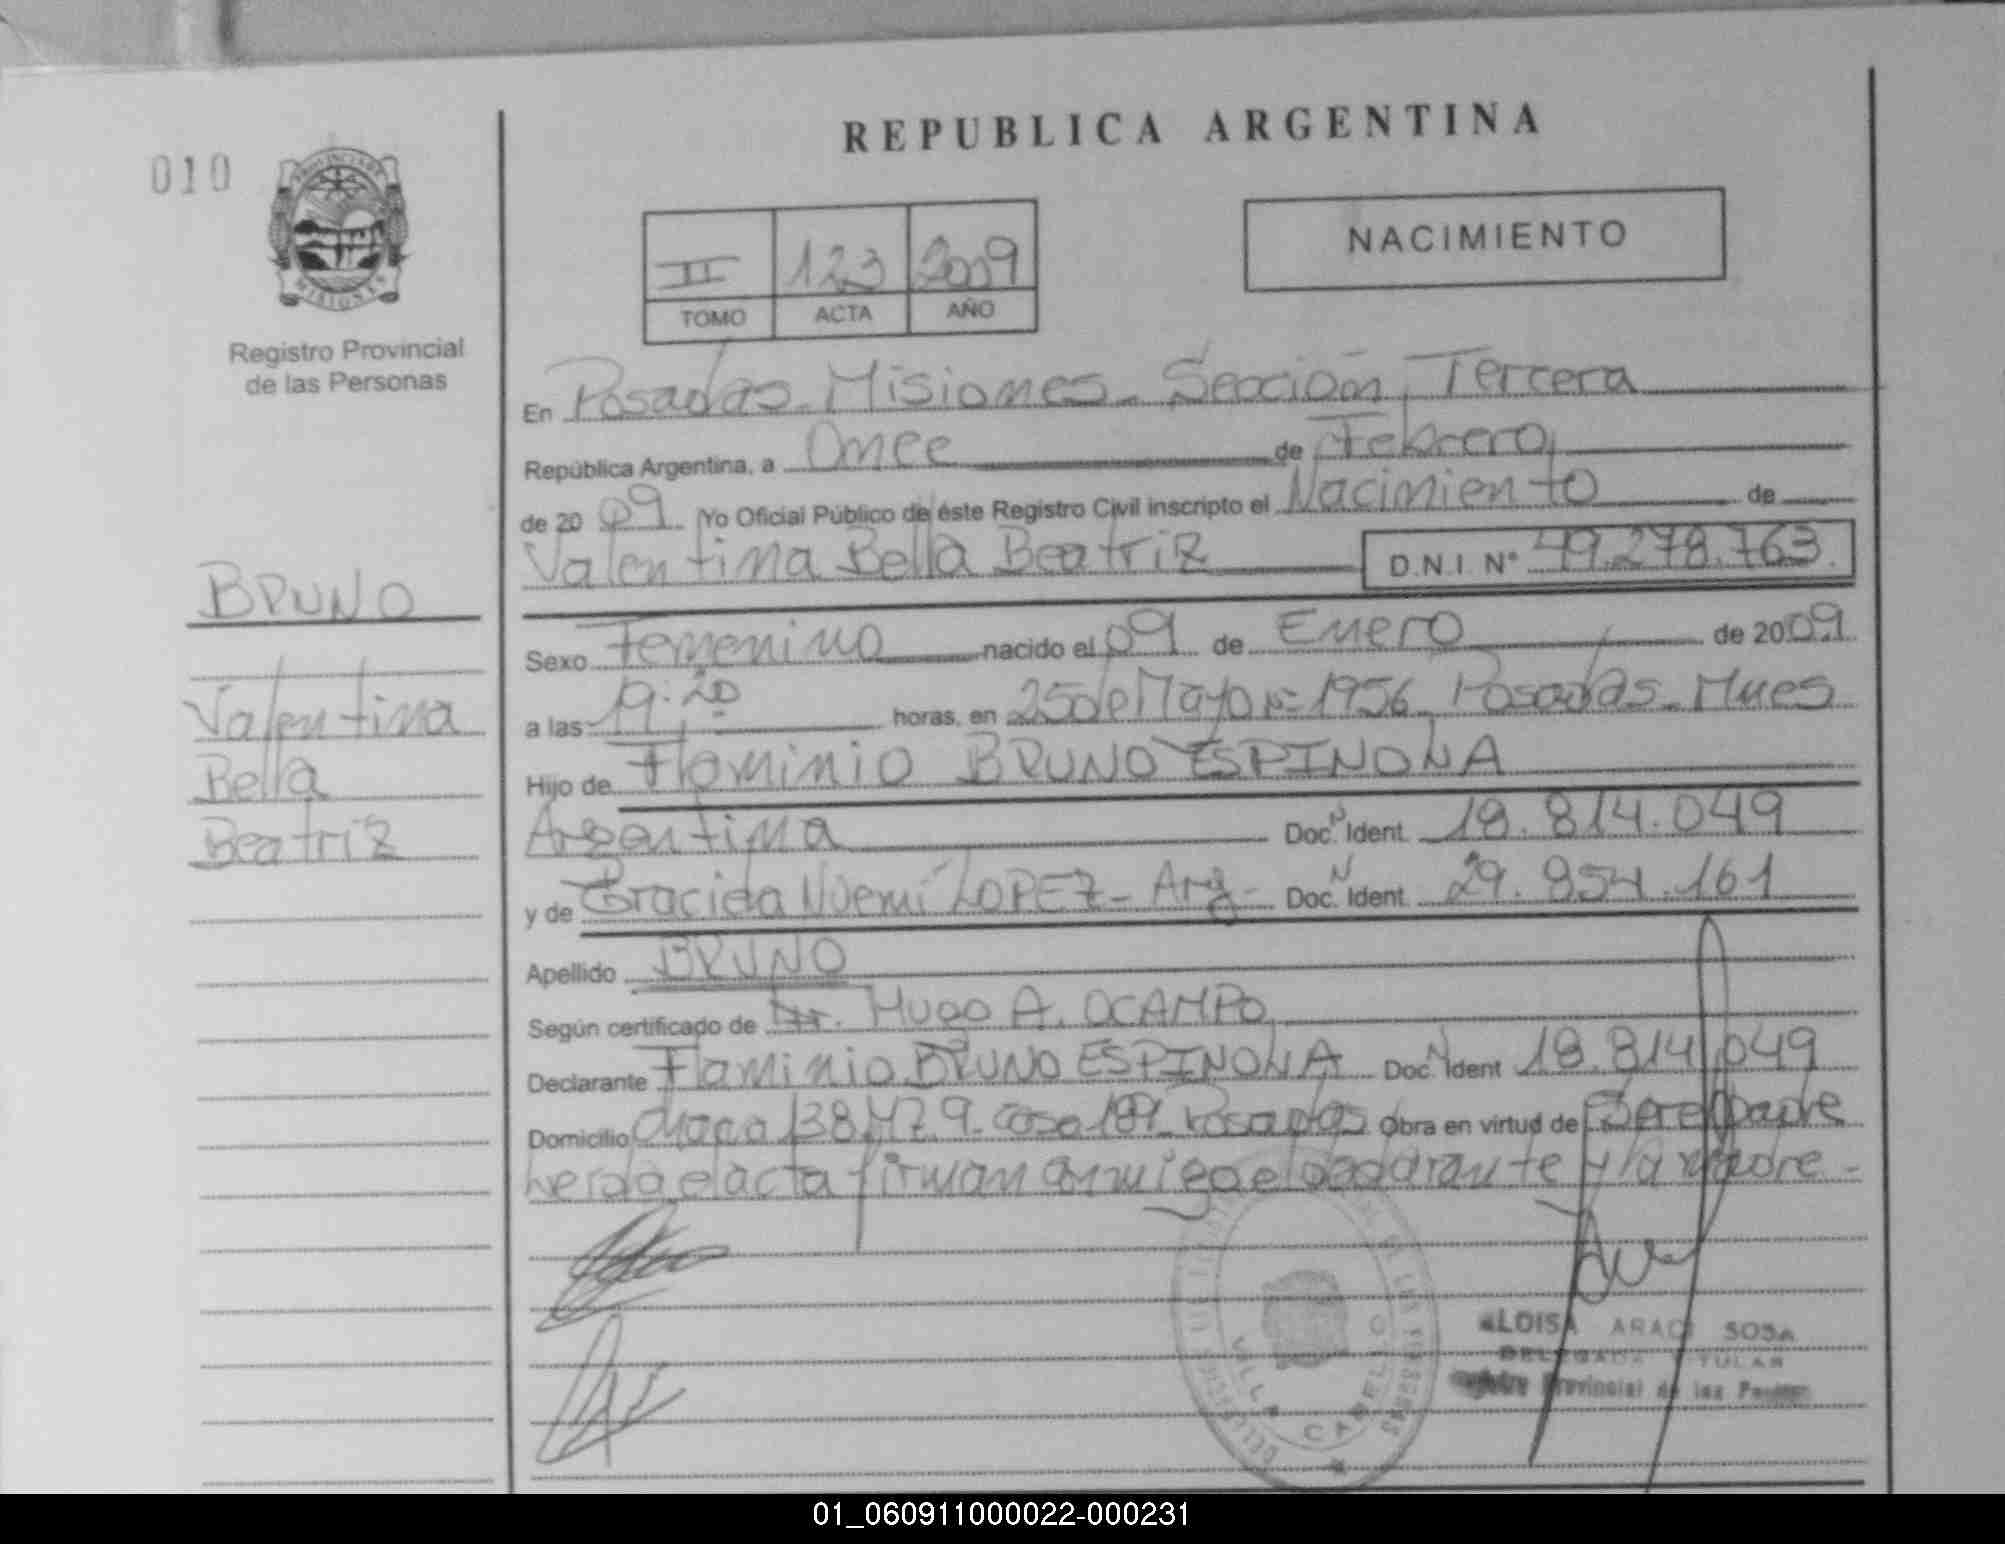 REPUBLICA ARGENTINA
010
NACIMIENTO
II 123 2009
TOMO ACTA AÑO
Registro Provincial
de las Personas
En Posadas - Misiones - Sección Tercera
República Argentina, a Once de Febrero
de 2009 Yo Oficial Público de éste Registro Civil inscripto el Nacimiento de
Valentina Bella Beatriz D.N.I. Nº 49.278.763.
BRUNO
Valentina
Bella
Beatriz
Sexo Femenino nacido el 09 de Enero de 2009
a las 19:20 horas, en 25 de Mayo Nº 1956 Posadas - Mnes
Hijo de Flaminio BRUNO ESPINOLA
Argentina Doc. N Ident. 18.814.049
y de Graciela Noemí LOPEZ - Arg - Doc. N Ident. 29.854.161
Apellido BRUNO
Según certificado de Dr. Hugo A. OCAMPO
Declarante Flaminio BRUNO ESPINOLA Doc. N Ident 18.814.049
Domicilio Chacra 138 Mz. 9 - casa 189 - Posadas Obra en virtud de Ser el padre
Leída el acta firman conmigo el declarante y la madre -
VILLA CABELLO
ELOISA ARACI SOSA
DELEGADA TITULAR
Registro Provincial de las Personas
01_060911000022-000231